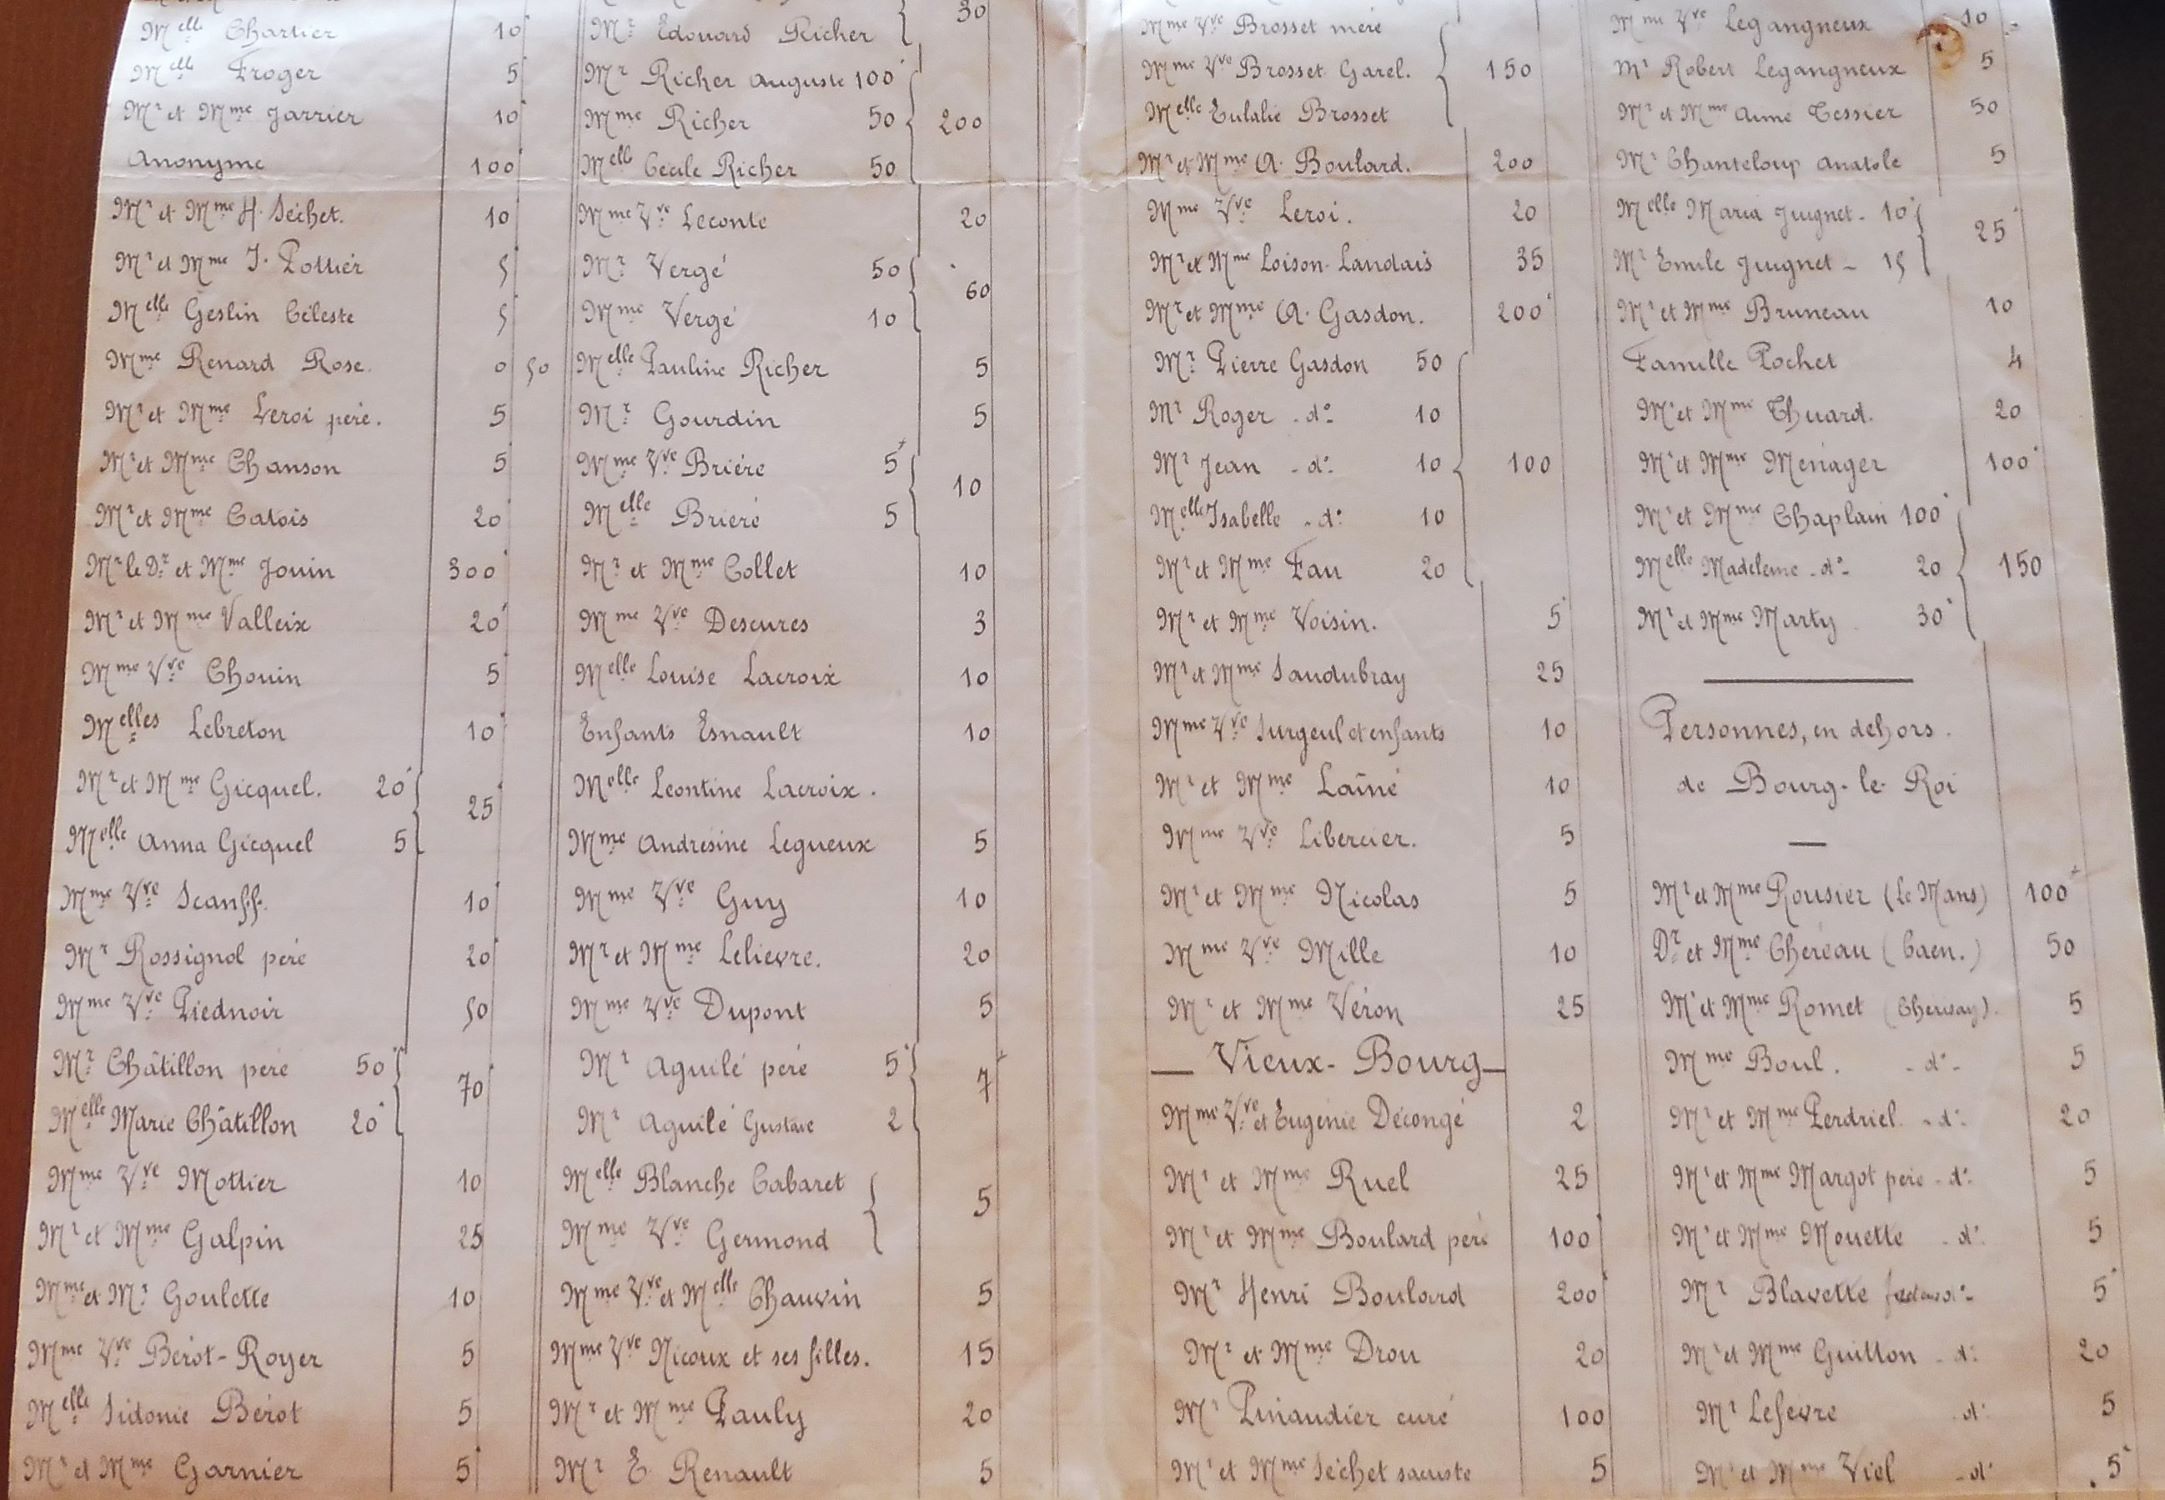 Melle Chartier 10
Melle Froger 5
Mr et Mme Jarrier 10
Anonyme 100
Mr et Mme H. Séchet. 10
Mr et Mme J. Pottier 5
Melle Geslin Céleste 5
Mme Renard Rose. 0 50
Mr et Mme Leroi père. 5
Mr et Mme Chanson 5
Mr et Mme Catois 20
Mr le Dr et Mme Jouin 300
Mr et Mme Valleix 20
Mme Vve Chouin 5
Melles Lebreton 10
Mr et Mme Gicquel. 20
25
Melle Anna Gicquel 5
Mme Vve Scanff. 10
Mr Rossignol père 20
Mme Vve Piednoir 50
Mr Châtillon père 50
70
Melle Marie Châtillon 20
Mme Vve Mottier 10
Mr et Mme Galpin 25
Mme et Mr Goulette 10
Mme Vve Bérot-Royer 5
Melle Sidonie Bérot 5
Mr et Mme Garnier 5
30
Mr Edouard Richer
Mr Richer Auguste 100
Mme Richer 50 200
Melle Cécile Richer 50
Mme Vve Leconte 20
Mr Vergé 50
60
Mme Vergé 10
Melle Pauline Richer 5
Mr Gourdin 5
Mme Vve Brière 5
10
Melle Brière 5
Mr et Mme Collet 10
Mme Vve Descures 3
Melle Louise Lacroix 10
Enfants Esnault 10
Melle Léontine Lacroix.
Mme Andrésine Legueux 5
Mme Vve Guy 10
Mr et Mme Lelievre. 20
Mme Vve Dupont 5
Mr Aguilé père 5
7
Mr Aguilé Gustave 2
Melle Blanche Cabaret
5
Mme Vve Germond
Mme Vve et Melle Chauvin 5
Mme Vve Nicoux et ses filles. 15
Mr et Mme Pauly 20
Mr E Renault 5
Mme Vve Brosset mère
Mme Vve Brosset Garel. 150
Melle Eulalie Brosset
Mr et Mme A. Boulard. 200
Mme Vve Leroi. 20
Mr et Mme Loison-Landais 35
Mr et Mme A. Gasdon. 200
Mr Pierre Gasdon 50
Mr Roger - do - 10
Mr Jean - do - 10 100
Melle Isabelle - do 10
Mr et Mme Fau 20
Mr et Mme Voisin. 5
Mr et Mme Saudubray 25
Mme Vve Surgeul et enfants 10
Mr et Mme Laîné 10
Mme Vve Libercier. 5
Mr et Mme Nicolas 5
Mme Vve Mille 10
Mr et Mme Véron 25
— Vieux-Bourg —
Mme Vve et Eugénie Décongé 2
Mr et Mme Ruel 25
Mr et Mme Boulard père 100
Mr Henri Boulard 200
Mr et Mme Drou 20
Mr Pinaudier curé 100
Mr et Mme Séchet sacriste 5
Mme Vve Legangneux 10
Mr Robert Legangneux 5
Mr et Mme Aimé Tessier 50
Mr Chanteloup Anatole 5
Melle Maria Juignet - 10
25
Mr Emile Juignet - 15
Mr et Mme Bruneau 10
Famille Pochet 4
Mr et Mme Thuard. 20
Mr et Mme Ménager 100
Mr et Mme Chaplain 100
Melle Madeleine - do - 20 150
Mr et Mme Marty 30
Personnes, en dehors.
de Bourg-le-Roi
Mr et Mme Rousier (Le Mans) 100
Dr et Mme Chéreau (Caen.) 50
Mr et Mme Romet (Cherisay). 5
Mme Boul. - do - 5
Mr et Mme Perdriel. - do - 20
Mr et Mme Margot père - do 5
Mr et Mme Mouette - do 5
Mr Blavette do - 5
Mr et Mme Guitton - do 20
Mr Lefevre - do 5
Mr et Mme Viel - do 5